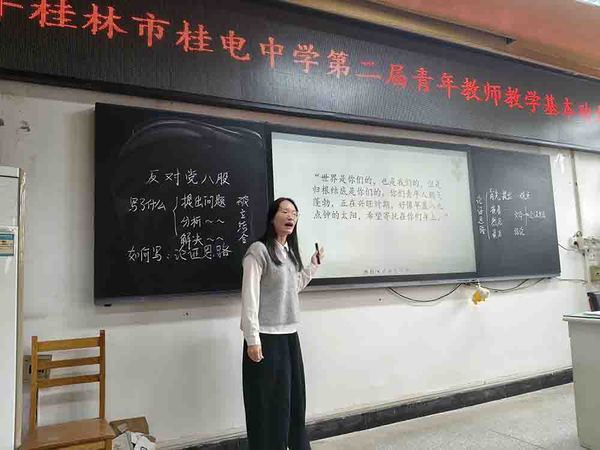 桂林市桂电中学第二届青年教师教学基本功
反对党八股
写了什么
提出问题
分析~~
解决~~
破立结合
如何写：论证思路
“世界是你们的，也是我们的，但是
归根结底是你们的。你们青年人朝气
蓬勃，正在兴旺时期，好像早晨八九
点钟的太阳，希望寄托在你们身上。”
论证思路